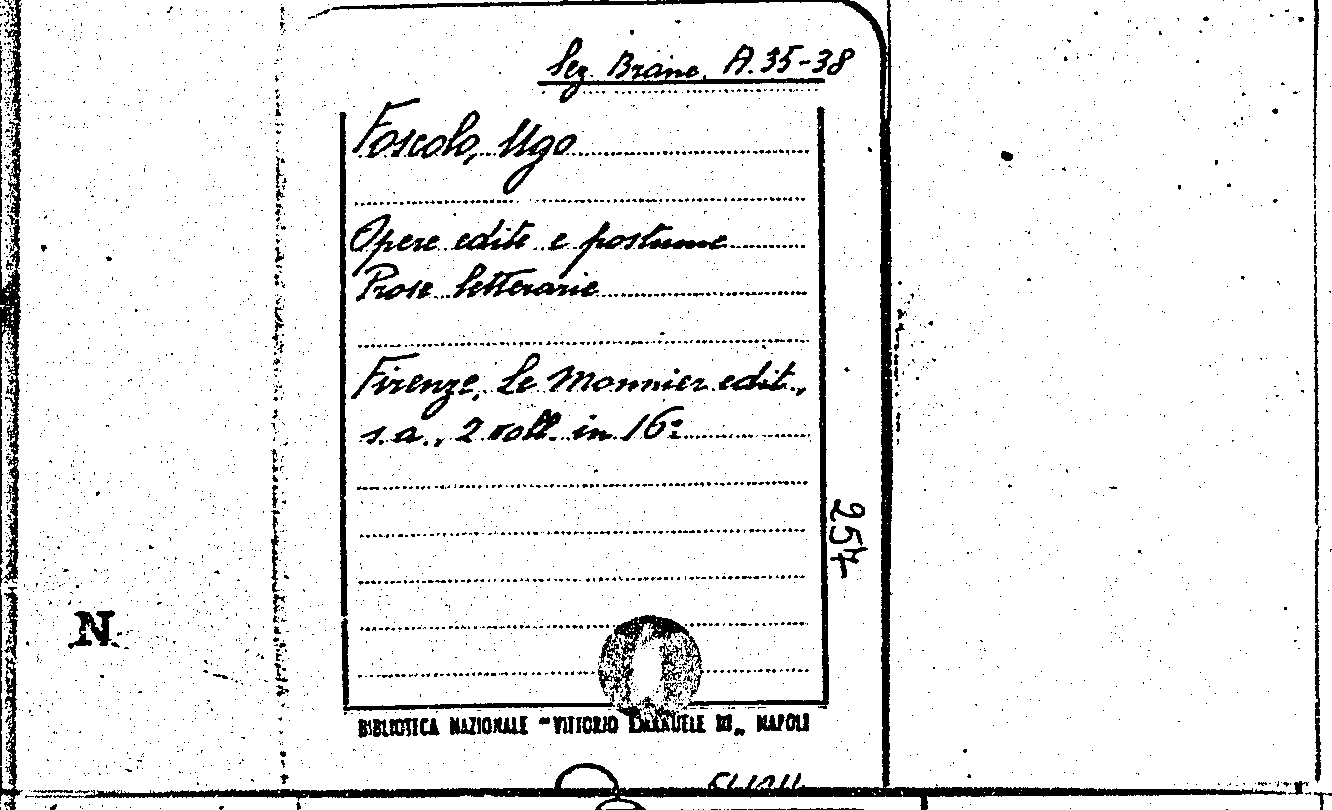 Sez. Branc. A.35-38
Foscolo, Ugo
Opere edite e postume
Prose letterarie
Firenze, Le Monnier edit.,
s.a., 2 voll. in 16º
254
N
BIBLIOTECA NAZIONALE "VITTORIO EMANUELE III„ NAPOLI